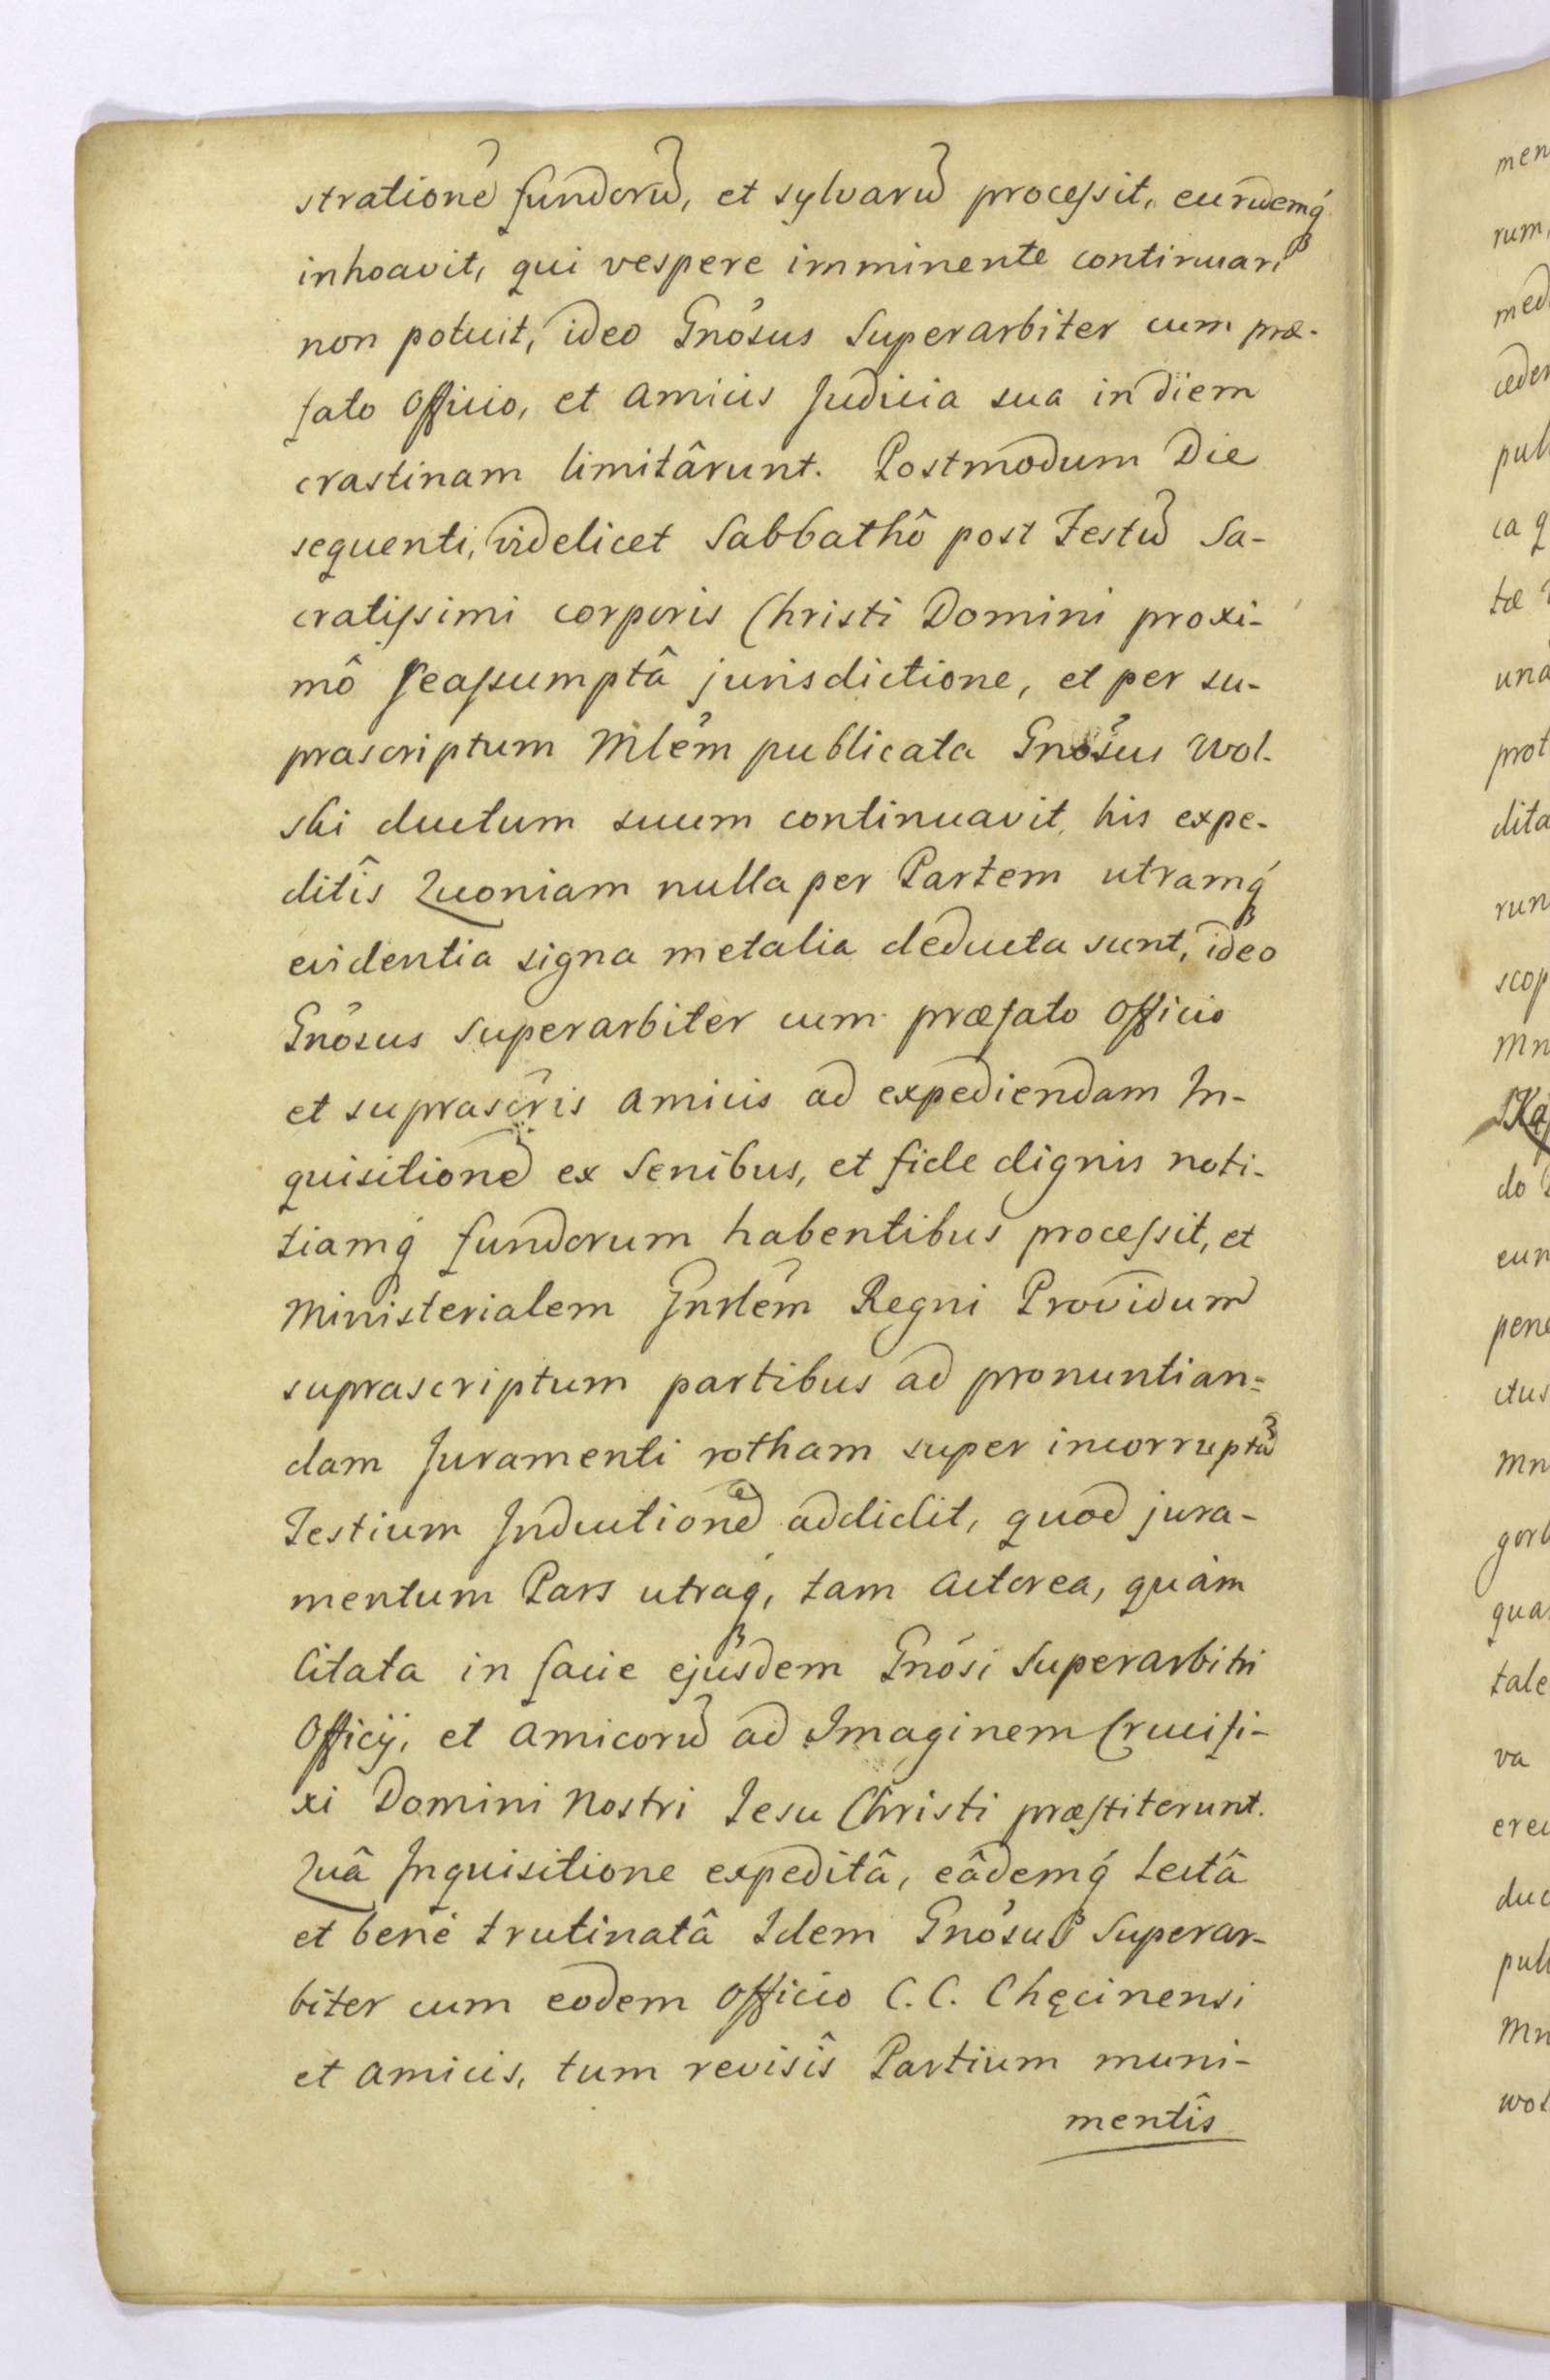 strationē fundorū, et sylvarū processit, eundemq́
inhoavit, qui vespere imminente continuari
non potuit, ideo Gnõsus Superarbiter cum præ-
fato Officio, et Amicis Judicia sua in diem
crastinam limitârunt. Postmodum Die
sequenti, videlicet Sabbathô post Festū Sa-
cratissimi corporis Christi Domini proxi-
mô reassumptâ jurisdictione, et per su-
prascriptum Mlẽm publicata Gnõsus Wol-
ski ductum suum continuavit, his expe-
ditîs Quoniam nulla per Partem utramq́
evidentia signa metalia deducta sunt, ideo
Gnõsus Superarbiter cum præfato Officio
et suprascr̃is Amicis ad expediendam In-
quisitionē ex Senibus, et fide dignis noti-
tiamq́ fundorum habentibus processit, et
Ministerialem Gnrlẽm Regni Providum
suprascriptum partibus ad pronuntian=
dam Juramenti rotham super incorruptū
Testium Inductionē addidit, quod jura-
mentum Pars utraq́, tam Actorea, quàm
Citata in facie ejusdem Gnõsi Superarbitri
Officij, et Amicorū ad Imaginem Crucifi-
xi Domini Nostri Jesu Christi præstiterunt.
Quâ Inquisitione expeditâ, eâdemq́ Lectâ
et benè trutinatâ Idem Gnõsus Superar-
biter cum eodem Officio C. C. Chęcinensi
et Amicis, tum revisîs Partium muni-
mentîs
men
rum,
med
ceden
pub
ca q
tæ
una
prot
dita
run
scop
Mn
do
eun
pene
ctus
Mn
gorb
qua
tale
va
erec
duc
pub
Mn
wol